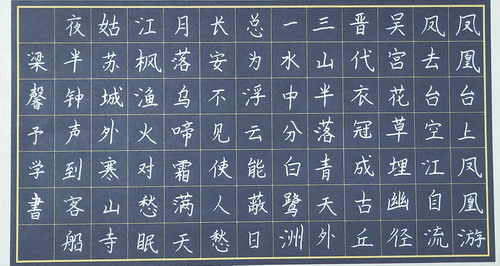 凤凰台上凤凰游
凤去台空江自流
吴宫花草埋幽径
晋代衣冠成古丘
三山半落青天外
一水中分白鹭洲
总为浮云能蔽日
长安不见使人愁
月落乌啼霜满天
江枫渔火对愁眠
姑苏城外寒山寺
夜半钟声到客船
梁馨予学書